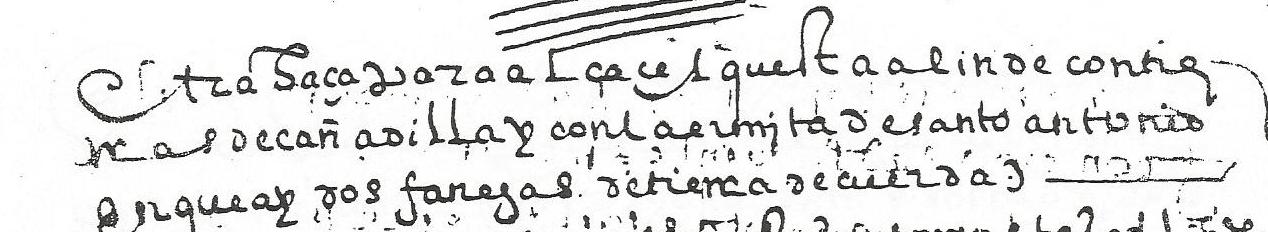 otra haça para alcacel questa alinde con tie
rras de cañadilla y con la ermita de santo antonio
en que ay dos fanegas de tierra de cuerda